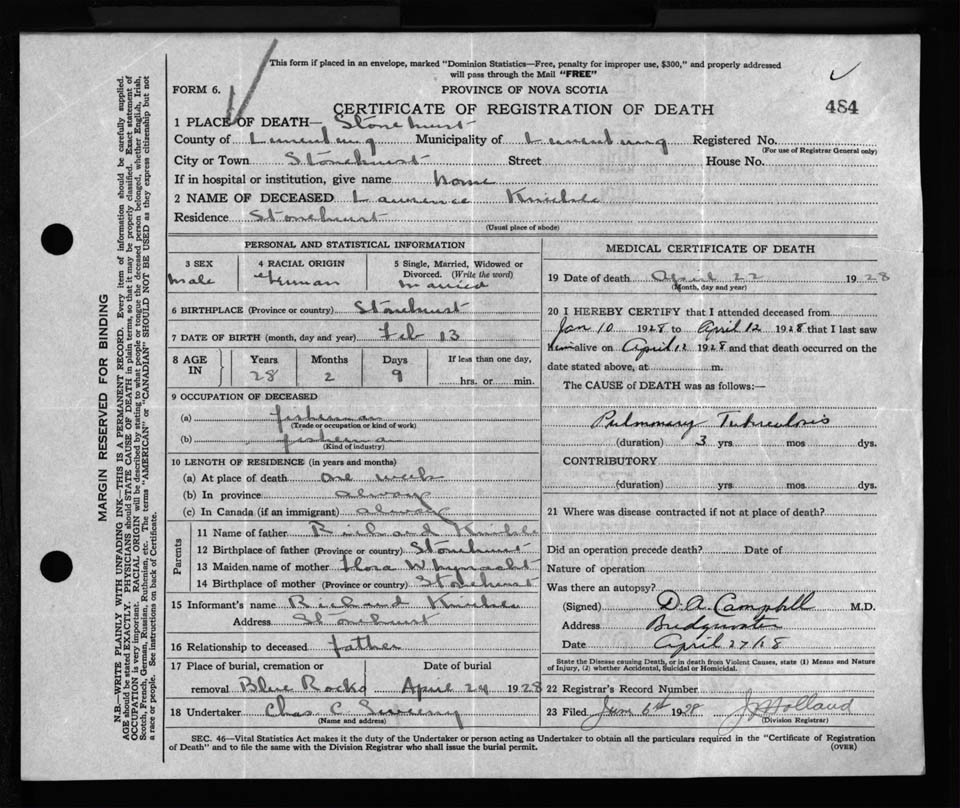 This form if placed in an envelope, marked "Dominion Statistics—Free, penalty for improper use, $300," and properly addressed
will pass through the Mail "FREE"
FORM 6. PROVINCE OF NOVA SCOTIA
CERTIFICATE OF REGISTRATION OF DEATH 484
1 PLACE OF DEATH— Stonehurst
County of Lunenburg Municipality of Lunenburg Registered No.
(For use of Registrar General only)
City or Town Stonehurst Street House No.
If in hospital or institution, give name home
2 NAME OF DECEASED Lawrence
Residence Stonehurst
(Usual place of abode)
PERSONAL AND STATISTICAL INFORMATION
3 SEX 4 RACIAL ORIGIN 5 Single, Married, Widowed or
Divorced. (Write the word)
male German married
6 BIRTHPLACE (Province or country) Stonehurst
7 DATE OF BIRTH (month, day and year) Feb 13
8 AGE IN Years Months Days If less than one day,
28 2 9 hrs. or min.
9 OCCUPATION OF DECEASED
(a) fisherman
(Trade or occupation or kind of work)
(b) fisherman
(Kind of industry)
10 LENGTH OF RESIDENCE (in years and months)
(a) At place of death one week
(b) In province always
(c) In Canada (if an immigrant) always
Parents
11 Name of father Richard
12 Birthplace of father (Province or country) Stonehurst
13 Maiden name of mother Flora Whynacht
14 Birthplace of mother (Province or country) Stonehurst
15 Informant's name Richard
Address Stonehurst
16 Relationship to deceased father
17 Place of burial, cremation or Date of burial
removal Blue Rocks April 24 1928
18 Undertaker Chas C
(Name and address)
MEDICAL CERTIFICATE OF DEATH
19 Date of death April 22 1928
(Month, day and year)
20 I HEREBY CERTIFY that I attended deceased from
Jan 10 1928 to April 12 1928 that I last saw
him alive on April 12 1928 and that death occurred on the
date stated above, at m.
The CAUSE of DEATH was as follows:—
Pulmonary Tuberculosis
(duration) 3 yrs. mos. dys.
CONTRIBUTORY
(duration) yrs. mos. dys.
21 Where was disease contracted if not at place of death?
Did an operation precede death? Date of
Nature of operation
Was there an autopsy?
(Signed) D. A. Campbell M.D.
Address Bridgewater
Date April 27/28
State the Disease causing Death, or in death from Violent Causes, state (1) Means and Nature
of Injury, (2) whether Accidental, Suicidal or Homicidal.
22 Registrar's Record Number
23 Filed June 6th 1928 Holland
(Division Registrar)
SEC. 46—Vital Statistics Act makes it the duty of the Undertaker or person acting as Undertaker to obtain all the particulars required in the "Certificate of Registration
of Death" and to file the same with the Division Registrar who shall issue the burial permit. (OVER)
MARGIN RESERVED FOR BINDING
N.B—WRITE PLAINLY WITH UNFADING INK—THIS IS A PERMANENT RECORD. Every item of information should be carefully supplied.
AGE should be stated EXACTLY. PHYSICIANS should STATE CAUSE OF DEATH in plain terms, so that it may be properly classified. Exact statement of
OCCUPATION is very important. RACIAL ORIGIN will be described by stating to what people or tongue the deceased person belonged, whether English, Irish,
Scotch, French, German, Russian, Ruthenian, etc. The terms "AMERICAN" or "CANADIAN" SHOULD NOT BE USED as they express citizenship but not
a race or people. See instructions on back of Certificate.